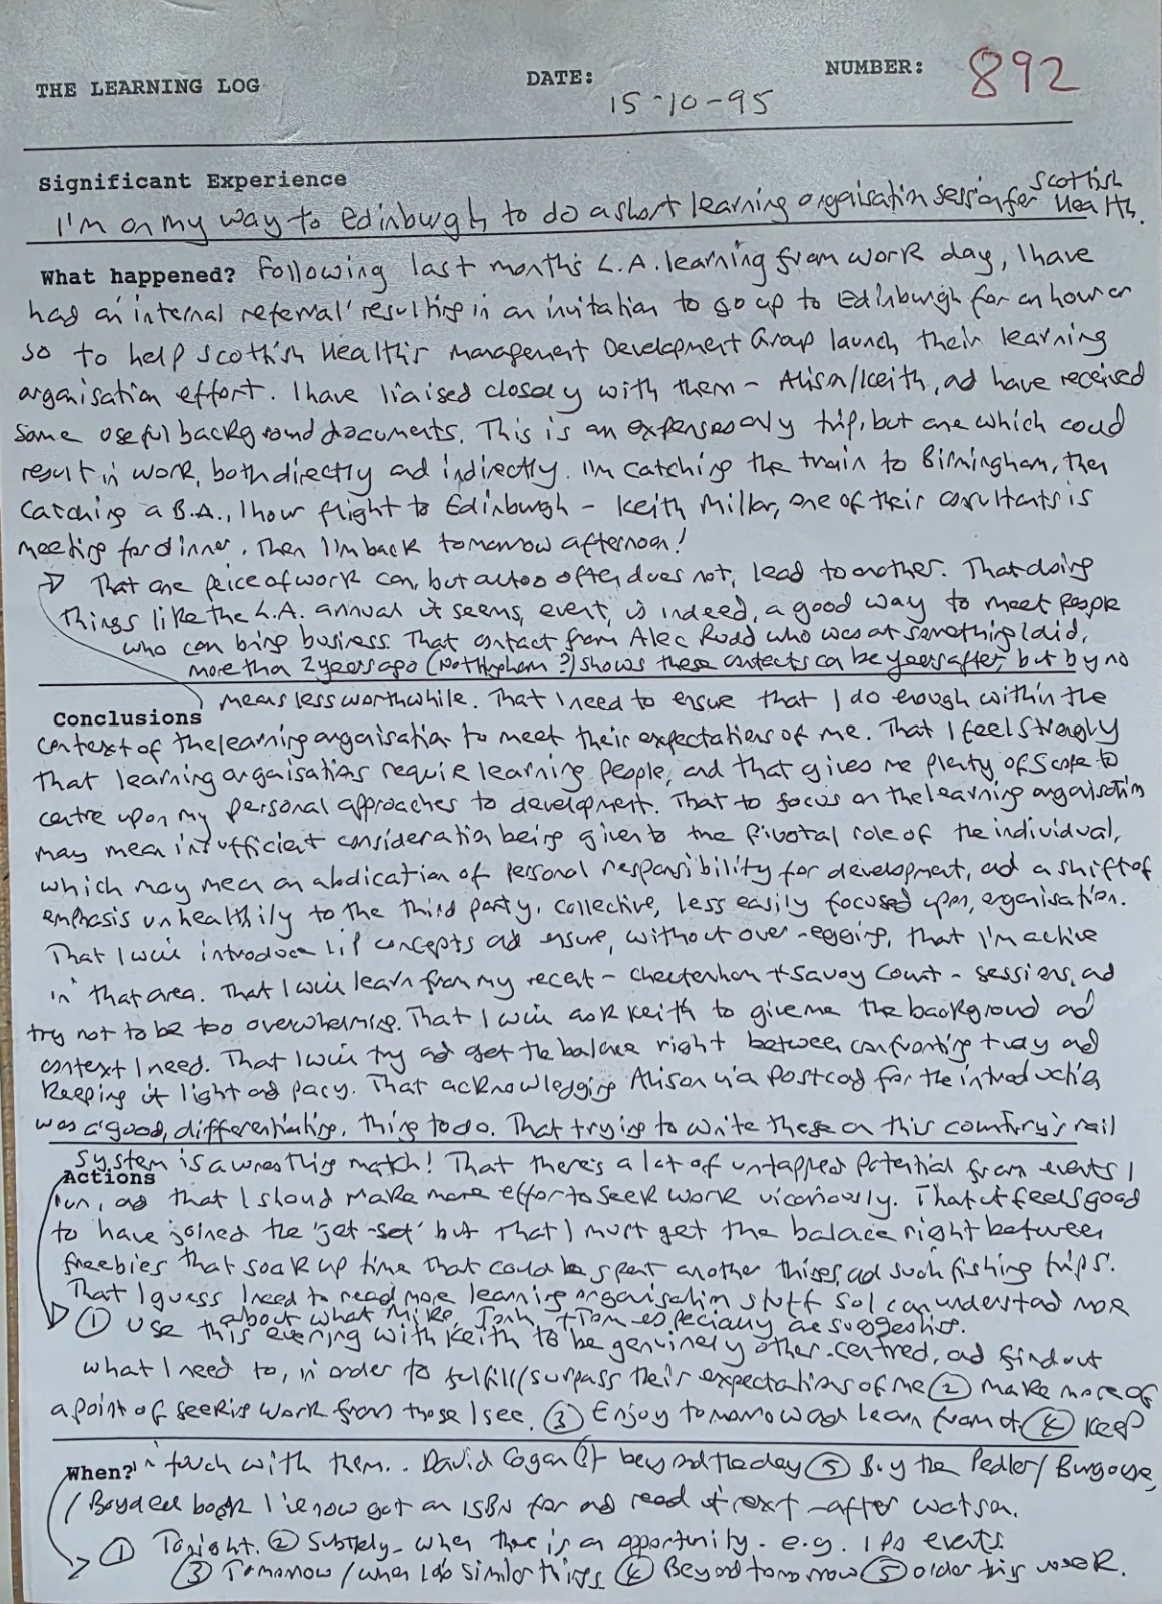 THE LEARNING LOG DATE: 15-10-95 NUMBER: 892
Significant Experience
I'm on my way to Edinburgh to do a short learning organisation session for Scottish Health.
What happened? Following last month's L.A. learning from work day, I have
had an 'internal referral' resulting in an invitation to go up to Edinburgh for an hour or
so to help Scottish Health's Management Development Group launch their learning
organisation effort. I have liaised closely with them - Alison/Keith, and have received
some useful background documents. This is an expenses only trip, but one which could
result in work, both directly and indirectly. I'm catching the train to Birmingham, then
catching a B.A., 1 hour flight to Edinburgh - Keith Millar, one of their consultants is
meeting for dinner. Then I'm back tomorrow afternoon!
That one peice of work can, but all too often does not, lead to another. That doing
things like the L.A. annual it seems, event, is indeed, a good way to meet people
who can bring business. That contact from Alec Rudd who was at something I did,
more than 2 years ago (Nottingham?) shows these contacts can be years after, but by no
means less worthwhile. That I need to ensure that I do enough within the
Conclusions
context of the learning organisation to meet their expectations of me. That I feel strongly
that learning organisations require learning people, and that gives me plenty of scope to
centre upon my personal approaches to development. That to focus on the learning organisation
may mean insufficient consideration being given to the pivotal role of the individual,
which may mean an abdication of personal responsibility for development, and a shift of
emphasis unhealthily to the third party, collective, less easily focused upon, organisation.
That I will introduce concepts and ensure, without over-egging, that I'm active
in that area. That I will learn from my recent - Cheltenham + Savoy Court - sessions, and
try not to be too overwhelming. That I will ask Keith to give me the background and
context I need. That I will try and get the balance right between confronting and
keeping it light and pacy. That acknowledging Alison via postcard for the introduction
was a good, differentiating, thing to do. That trying to write these on this country's rail
system is a wrestling match! That there's a lot of untapped potential from events I
Actions
run, and that I should make more effort to seek work vicariously. That it feels good
to have joined the 'jet-set' but that I must get the balance right between
freebies that soak up time that could be spent on other things, and such fishing trips.
That I guess I need to read more learning organisation stuff so I can understand more
about what Mike, John, + Tom especially are suggesting.
① Use this evening with Keith to be genuinely other-centred, and find out
what I need to, in order to fulfill/surpass their expectations of me ② Make more of
a point of seeking work from those I see. ③ Enjoy tomorrow and learn from it ④ Keep
When? in touch with them.. David Cogan(?) beyond the day ⑤ Buy the Pedler/Burgoyne,
/Boydell book I've now got an ISBN for and read it next - after Watson.
① Tonight. ② Subtlely - when there is an opportunity - e.g. events.
③ Tomorrow / when I do similar things ④ Beyond tomorrow ⑤ order this week.